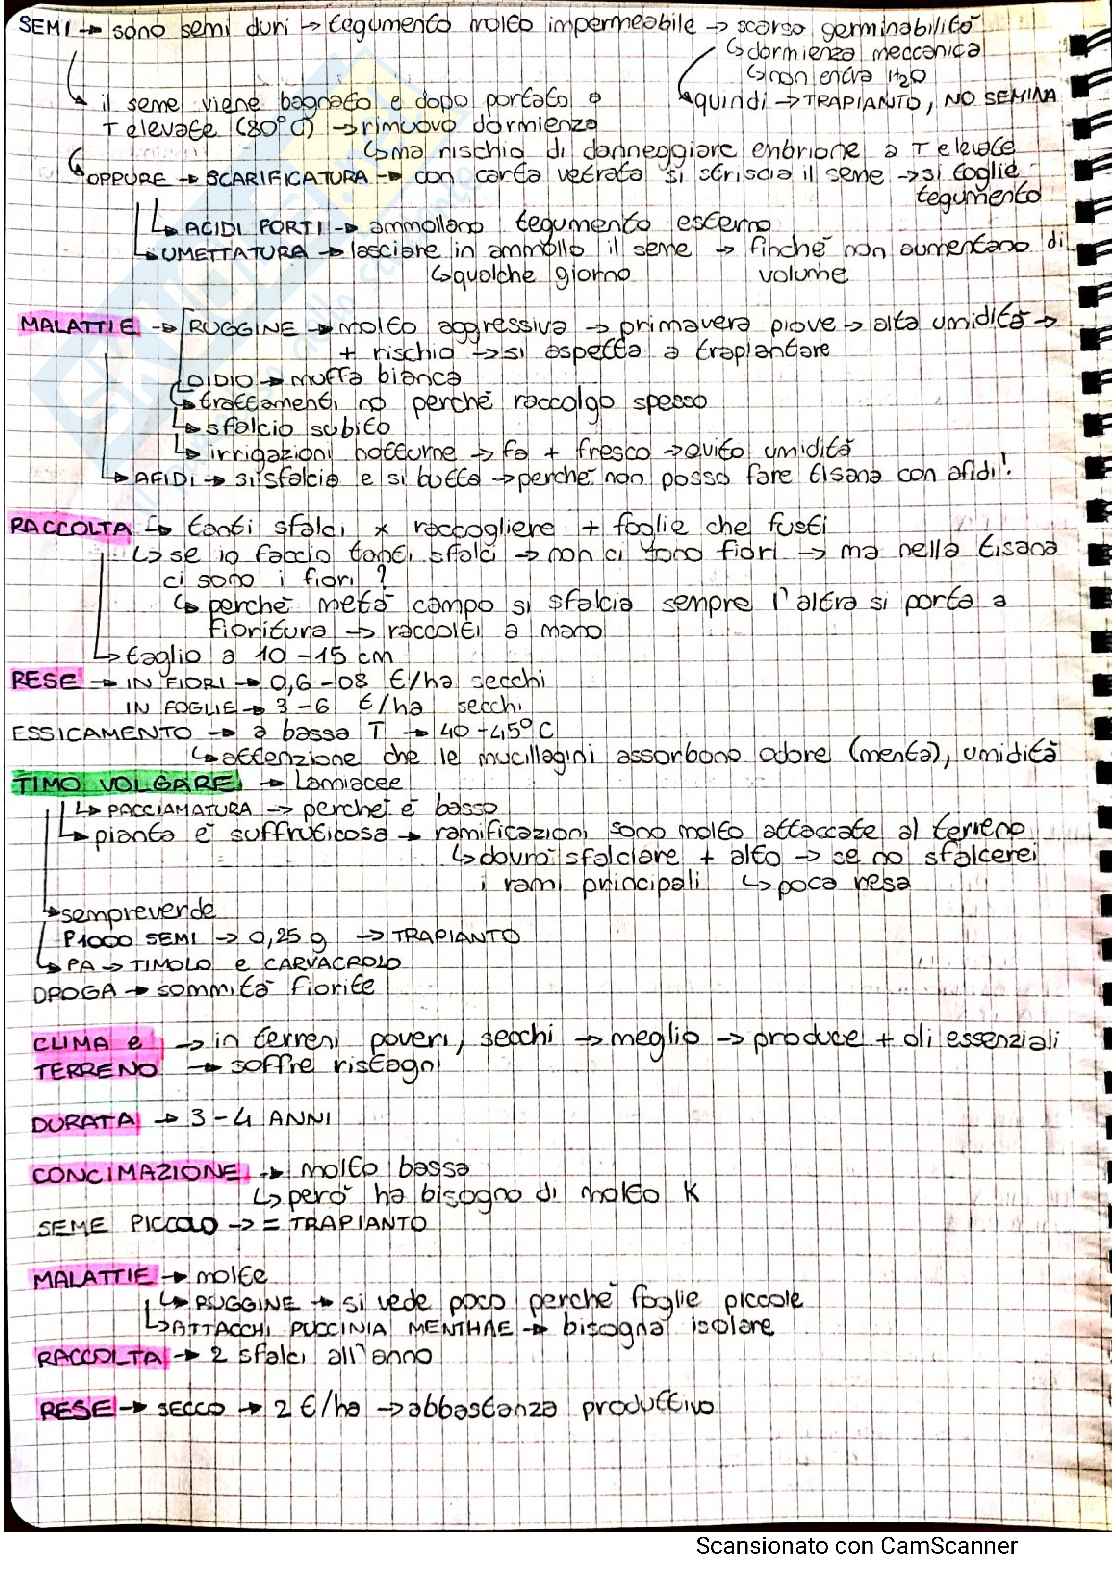 SEMI → sono semi duri → tegumento molto impermeabile → scarsa germinabilità
↳ dormienza meccanica
↳ non entra H2O
il seme viene bagnato e dopo portato a ↳ quindi → TRAPIANTO, NO SEMINA
T elevate (80°C) → rimuovo dormienza
↳ ma rischio di danneggiare embrione a T elevate
↳ OPPURE → SCARIFICATURA → con carta vetrata si striscia il seme → si toglie
tegumento
↳ ACIDI FORTI → ammollano tegumento esterno
↳ UMETTATURA → lasciare in ammollo il seme → finché non aumentano di
↳ qualche giorno volume
MALATTIE → RUGGINE → molto aggressiva → primavera piove → alta umidità →
+ rischio → si aspetta a trapiantare
OIDIO → muffa bianca
↳ trattamenti no perché raccolgo spesso
↳ sfalcio subito
↳ irrigazioni notturne → fa + fresco → evito umidità
↳ AFIDI → si sfalcia e si butta → perché non posso fare tisana con afidi!
RACCOLTA ↳ tanti sfalci x raccogliere + foglie che fusti
↳ se io faccio tanti sfalci → non ci sono fiori → ma nella tisana
ci sono i fiori?
↳ perché metà campo si sfalcia sempre l'altra si porta a
fioritura → raccolti a mano
↳ taglio a 10-15 cm
RESE → IN FIORI → 0,6-08 t/ha secchi
IN FOGLIE → 3-6 t/ha secchi
ESSICAMENTO → a bassa T → 40-45°C
↳ attenzione che le mucillagini assorbono odore (menta), umidità
TIMO VOLGARE → Lamiacee
↳ PACCIAMATURA → perché è basso
↳ pianta è suffruticosa → ramificazioni sono molto attaccate al terreno
↳ dovrò sfalciare + alto → se no sfalcerei
i rami principali ↳ poca resa
↳ sempreverde
P1000 SEMI → 0,25 g → TRAPIANTO
↳ PA → TIMOLO e CARVACROLO
DROGA → sommità fiorite
CLIMA e → in terreni poveri, secchi → meglio → produce + oli essenziali
TERRENO → soffre ristagni
DURATA → 3-4 ANNI
CONCIMAZIONE → molto bassa
↳ però ha bisogno di molto K
SEME PICCOLO → = TRAPIANTO
MALATTIE → molte
↳ RUGGINE → si vede poco perché foglie piccole
↳ ATTACCHI PUCCINIA MENTHAE → bisogna isolare
RACCOLTA → 2 sfalci all'anno
RESE → SECCO → 2 t/ha → abbastanza produttivo
Scansionato con CamScanner